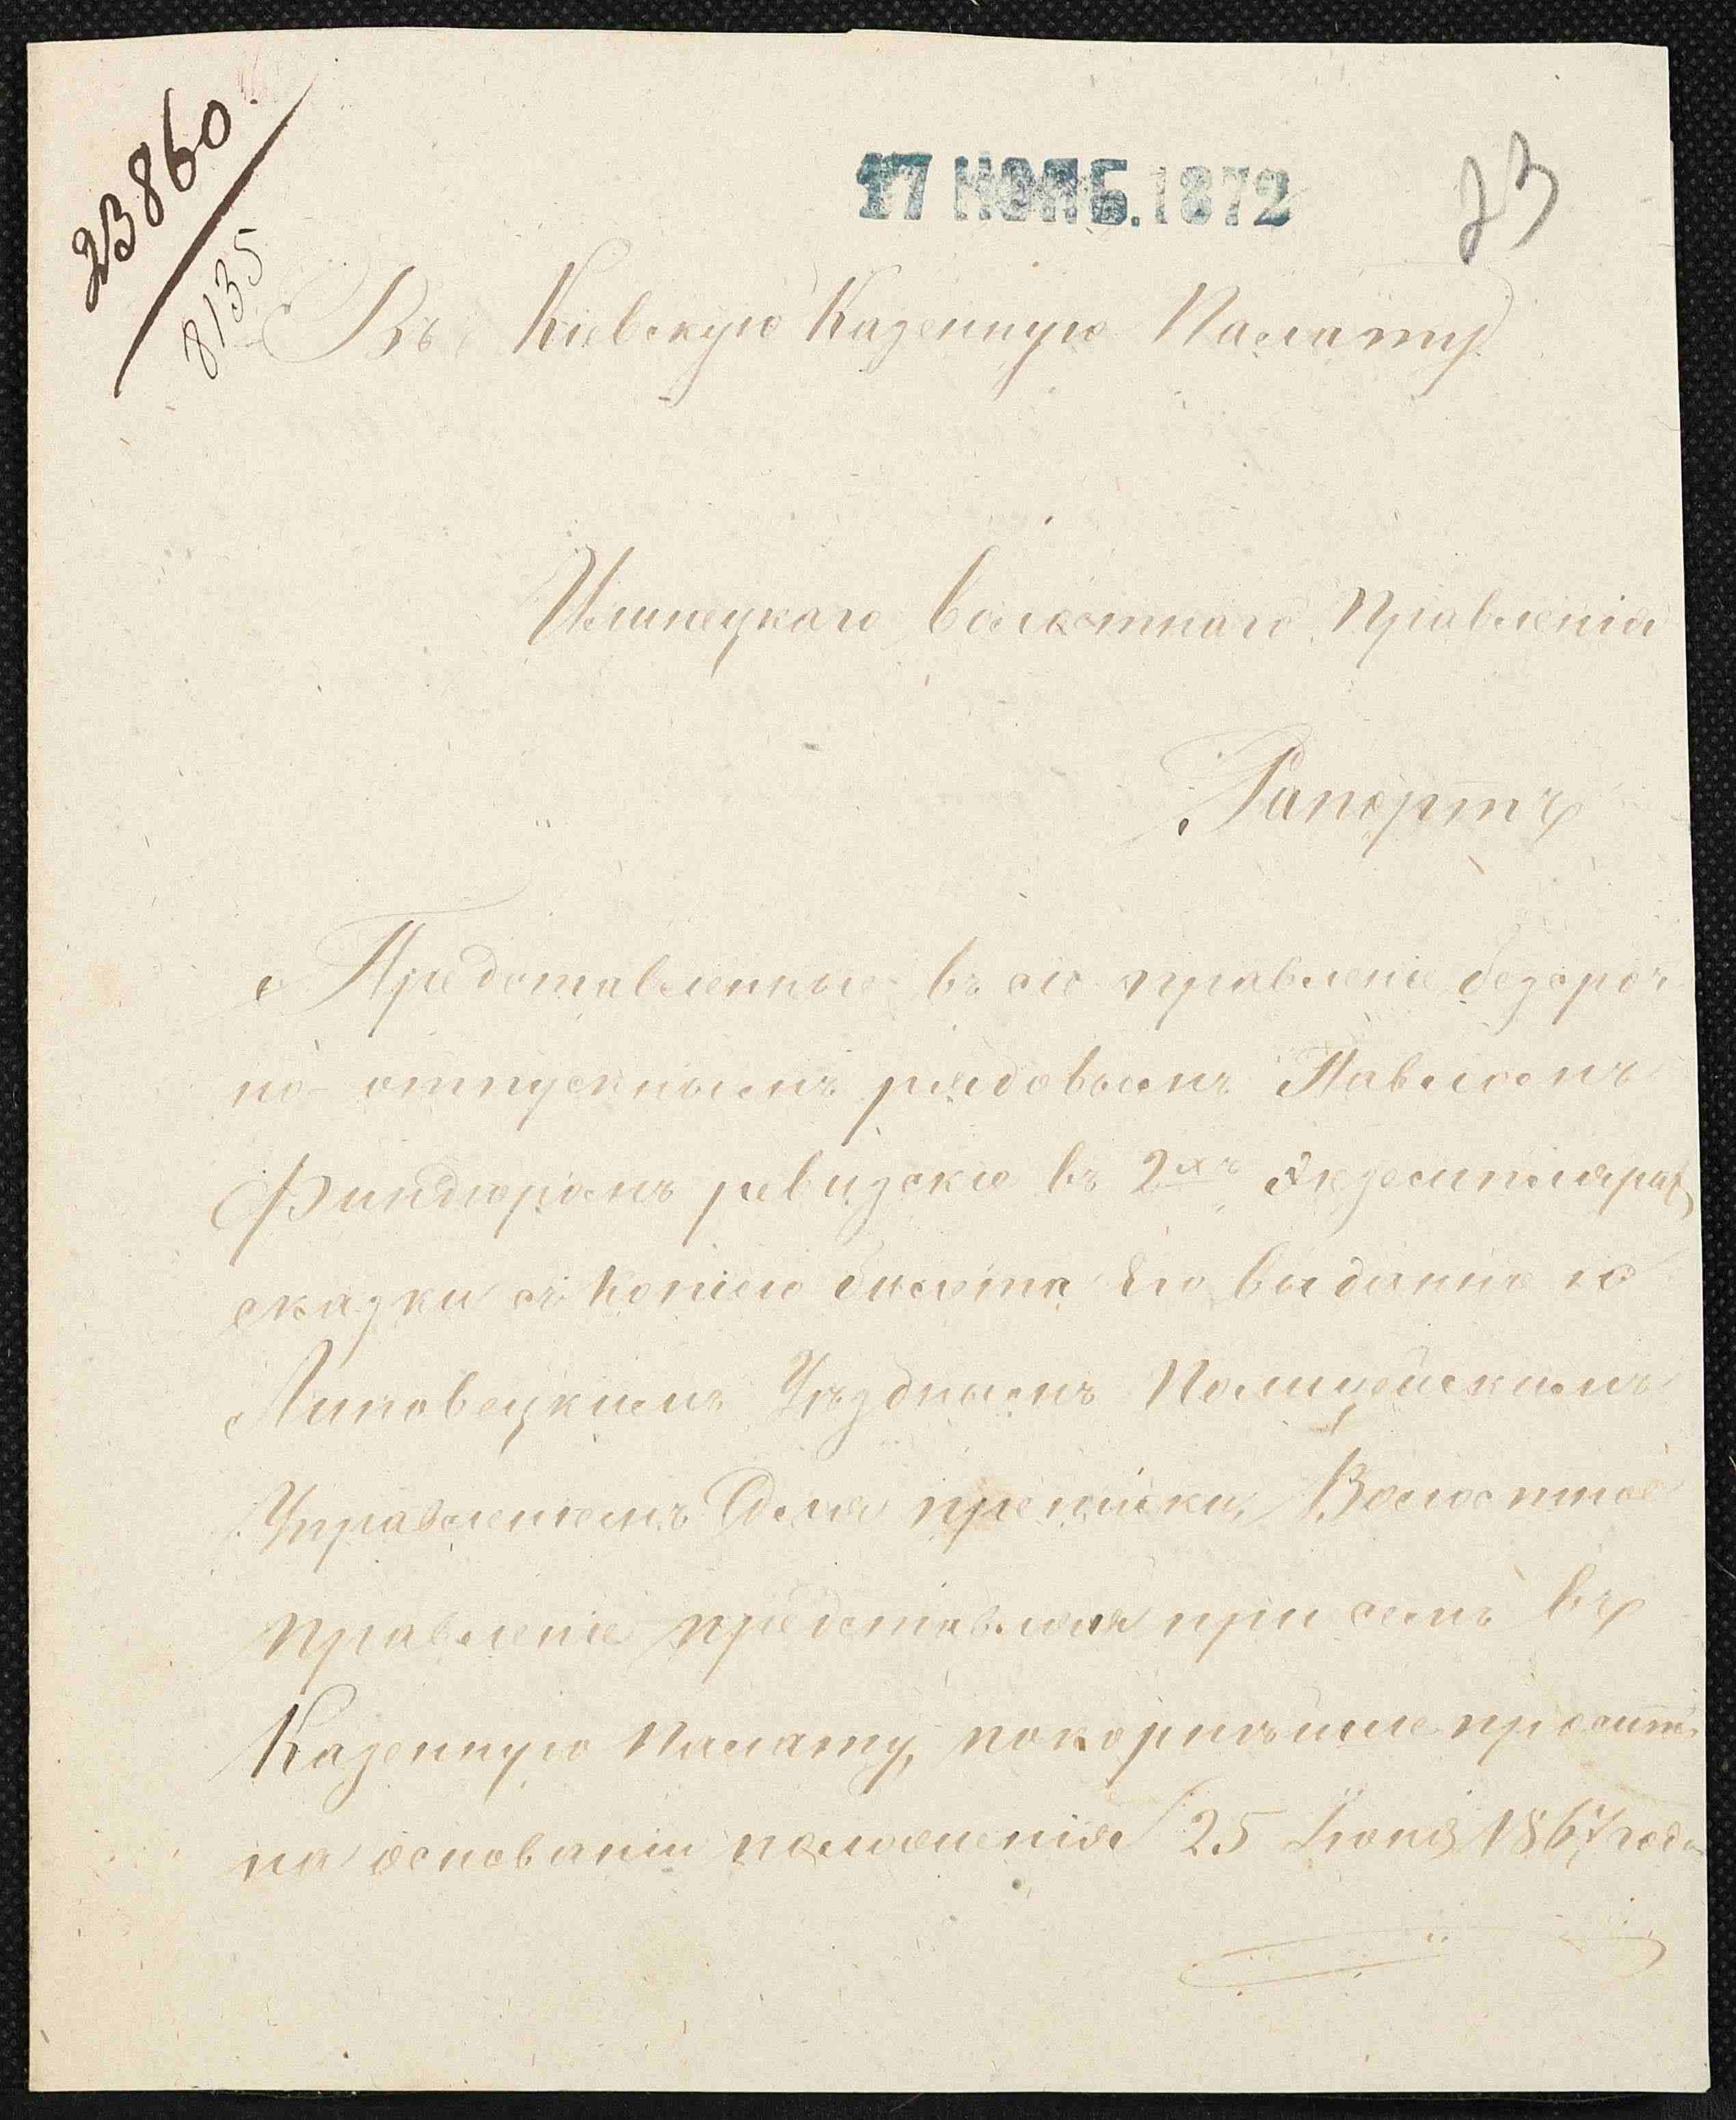 23860
8135
17 НОЯБ. 1872
23
Въ Кіевскую Казенную Палату
Илинецкаго Волостнаго Правленія
Рапортъ
Представленные въ сіе правленіе безсроч
но-отпускнымъ рядовымъ Павломъ
ревизскіе въ 2хъ Экземплярахъ
сказки съ копіею билета Его выданнаго
Липовецкимъ Уѣзднымъ Полицейскимъ
Управленіемъ для Волостное
Правленіе представляя при семъ въ
Казенную Палату, покорнѣйше проситъ
на основаніи положенія 25 Іюня 1867 года